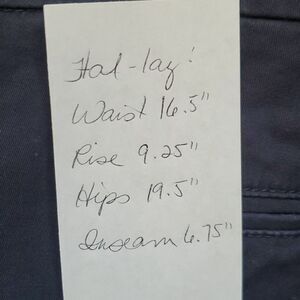 Flat-lay:
Waist 16.5"
Rise 9.25"
Hips 19.5"
Inseam 6.75"